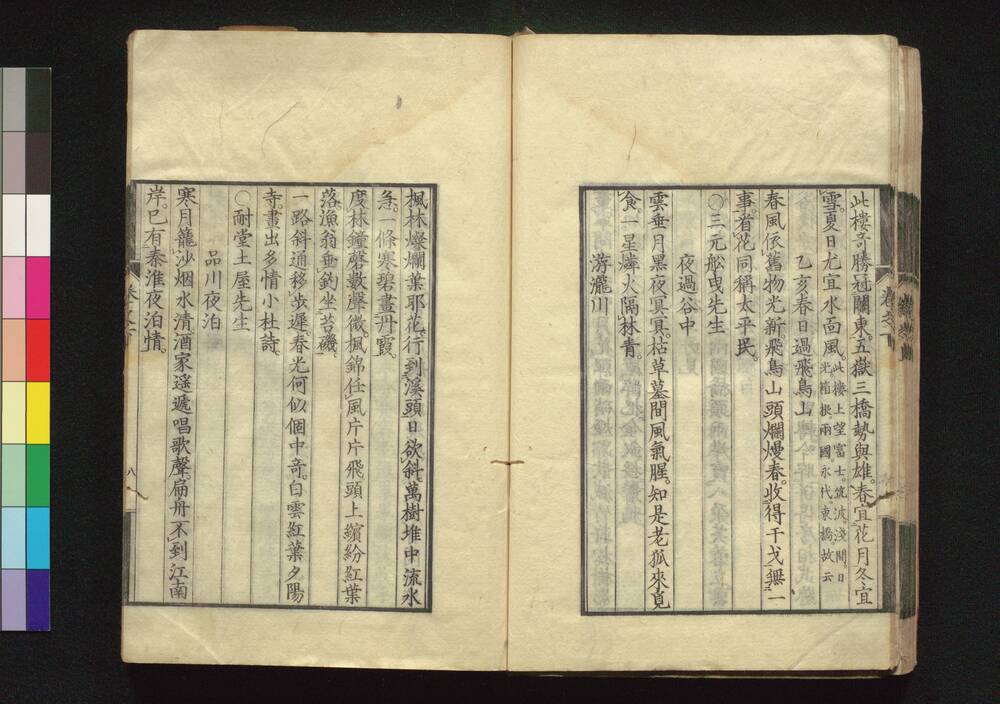 此樓奇勝冠關東。五嶽三橋勢與雄。春宜花月冬宜
雪。夏日尤宜水面風。此樓上望富士。筑波。淺間。日
光箱根兩國永代東橋故云
乙亥春日過飛鳥山
春風依舊物光新飛鳥山頭爛熳春。收得干戈無一
事。着花同稱太平民。
〇三元船曳先生
夜過谷中
雲垂月黑夜冥冥。枯草墓間風氣腥。知是老狐來覓
食。一星燐火隔林青。
游瀧川
楓林燦爛葉耶花。行到溪頭日欲斜。萬樹堆中流水
急。一條寒碧畫丹霞。
度林鐘磬數聲微。楓錦任風片片飛。頭上繽紛紅葉
落。漁翁垂釣坐苔磯。
一路斜通移步遲。春光何似個中奇。白雲紅葉夕陽
寺。畫出多情小杜詩。
〇耐堂土屋先生
品川夜泊
寒月籠沙烟水清酒家遙遞唱歌聲。扁舟不到江南
岸。已有秦淮夜泊情。
八